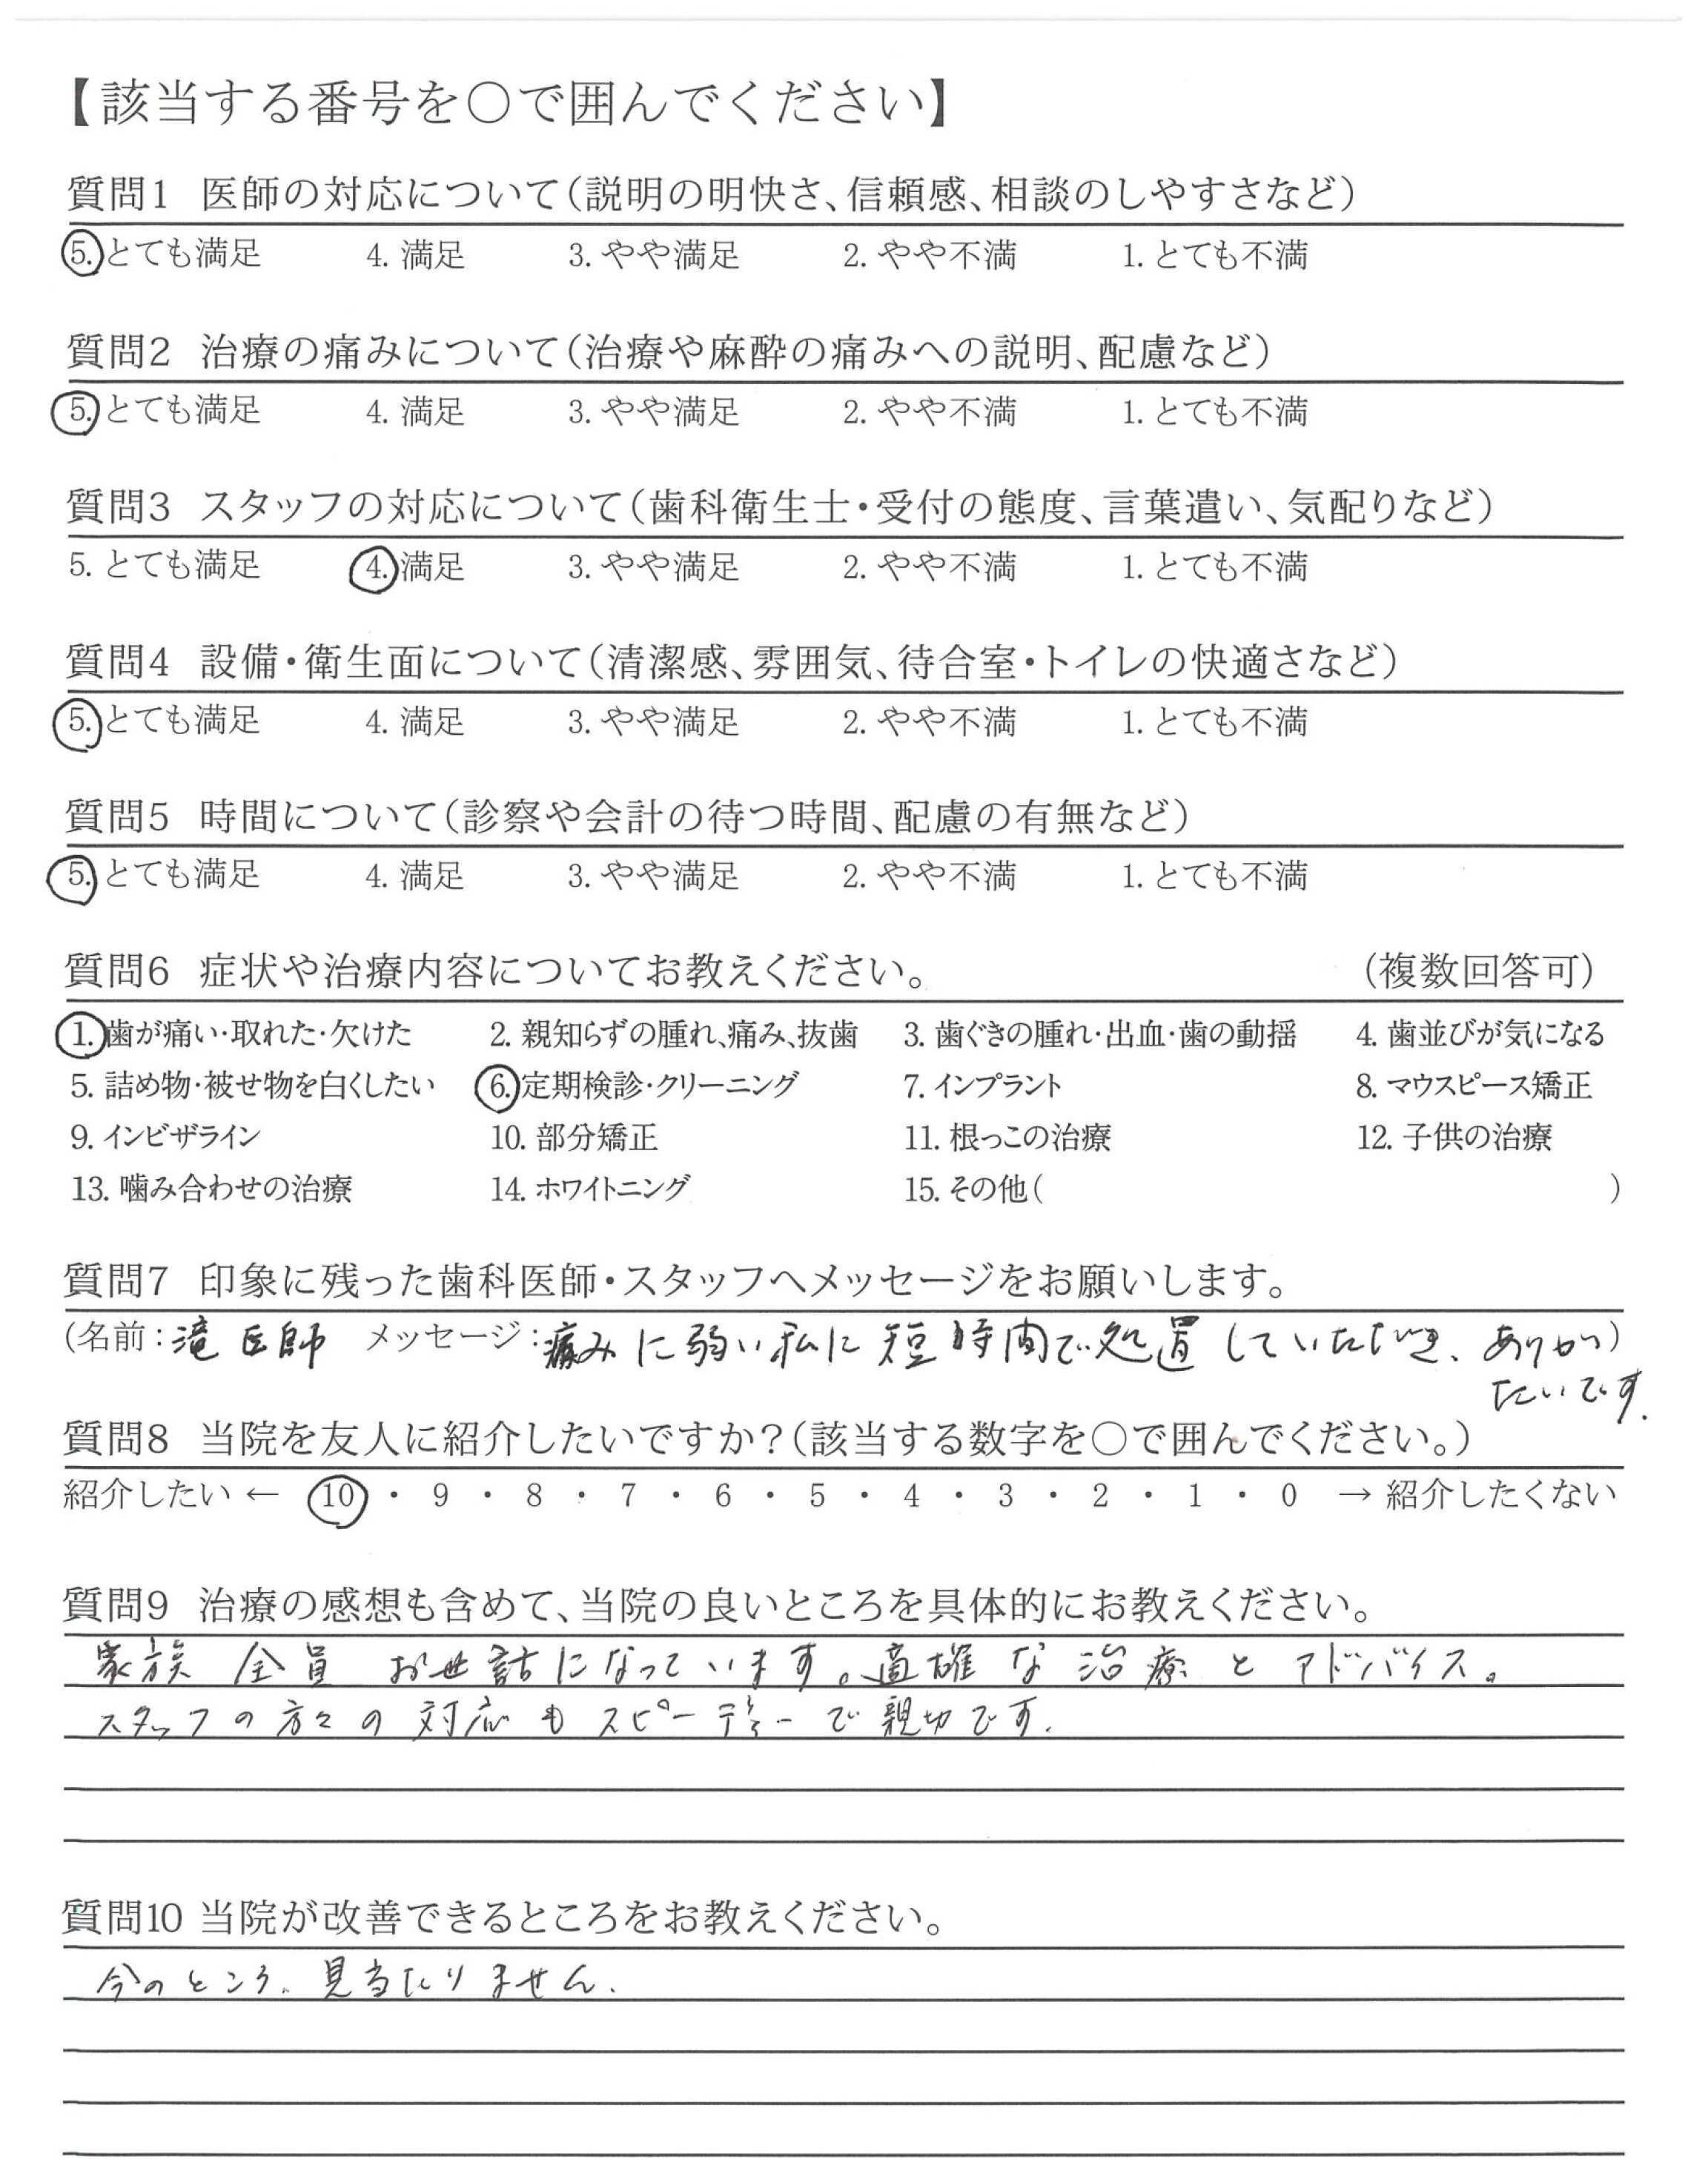 【該当する番号を○で囲んでください】
質問1 医師の対応について(説明の明快さ、信頼感、相談のしやすさなど)
5. とても満足 4. 満足 3. やや満足 2. やや不満 1. とても不満
質問2 治療の痛みについて(治療や麻酔の痛みへの説明、配慮など)
5. とても満足 4. 満足 3. やや満足 2. やや不満 1. とても不満
質問3 スタッフの対応について(歯科衛生士・受付の態度、言葉遣い、気配りなど)
5. とても満足 4. 満足 3. やや満足 2. やや不満 1. とても不満
質問4 設備・衛生面について(清潔感、雰囲気、待合室・トイレの快適さなど)
5. とても満足 4. 満足 3. やや満足 2. やや不満 1. とても不満
質問5 時間について(診察や会計の待つ時間、配慮の有無など)
5. とても満足 4. 満足 3. やや満足 2. やや不満 1. とても不満
質問6 症状や治療内容についてお教えください。 (複数回答可)
1. 歯が痛い・取れた・欠けた 2. 親知らずの腫れ、痛み、抜歯 3. 歯ぐきの腫れ・出血・歯の動揺 4. 歯並びが気になる
5. 詰め物・被せ物を白くしたい 6. 定期検診・クリーニング 7. インプラント 8. マウスピース矯正
9. インビザライン 10. 部分矯正 11. 根っこの治療 12. 子供の治療
13. 噛み合わせの治療 14. ホワイトニング 15. その他( )
質問7 印象に残った歯科医師・スタッフへメッセージをお願いします。
(名前:滝医師 メッセージ:痛みに弱い私に短時間で処置していただき、ありがた)
たいです.
質問8 当院を友人に紹介したいですか?(該当する数字を○で囲んでください。)
紹介したい ← 10 ・ 9 ・ 8 ・ 7 ・ 6 ・ 5 ・ 4 ・ 3 ・ 2 ・ 1 ・ 0 → 紹介したくない
質問9 治療の感想も含めて、当院の良いところを具体的にお教えください。
家族全員お世話になっています。適確な治療とアドバイス。
スタッフの方々の対応もスピーディーで親切です.
質問10 当院が改善できるところをお教えください。
今のところ、見当たりません.